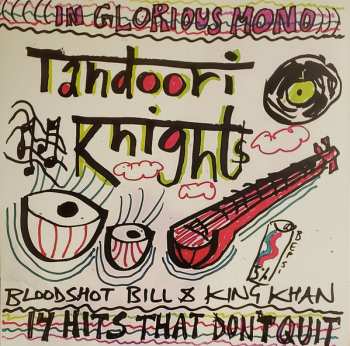 IN GLORIOUS MONO
Tandoori
Knights
BEPSI
BLOODSHOT BILL & KING KHAN
14 HITS THAT DON'T QUIT